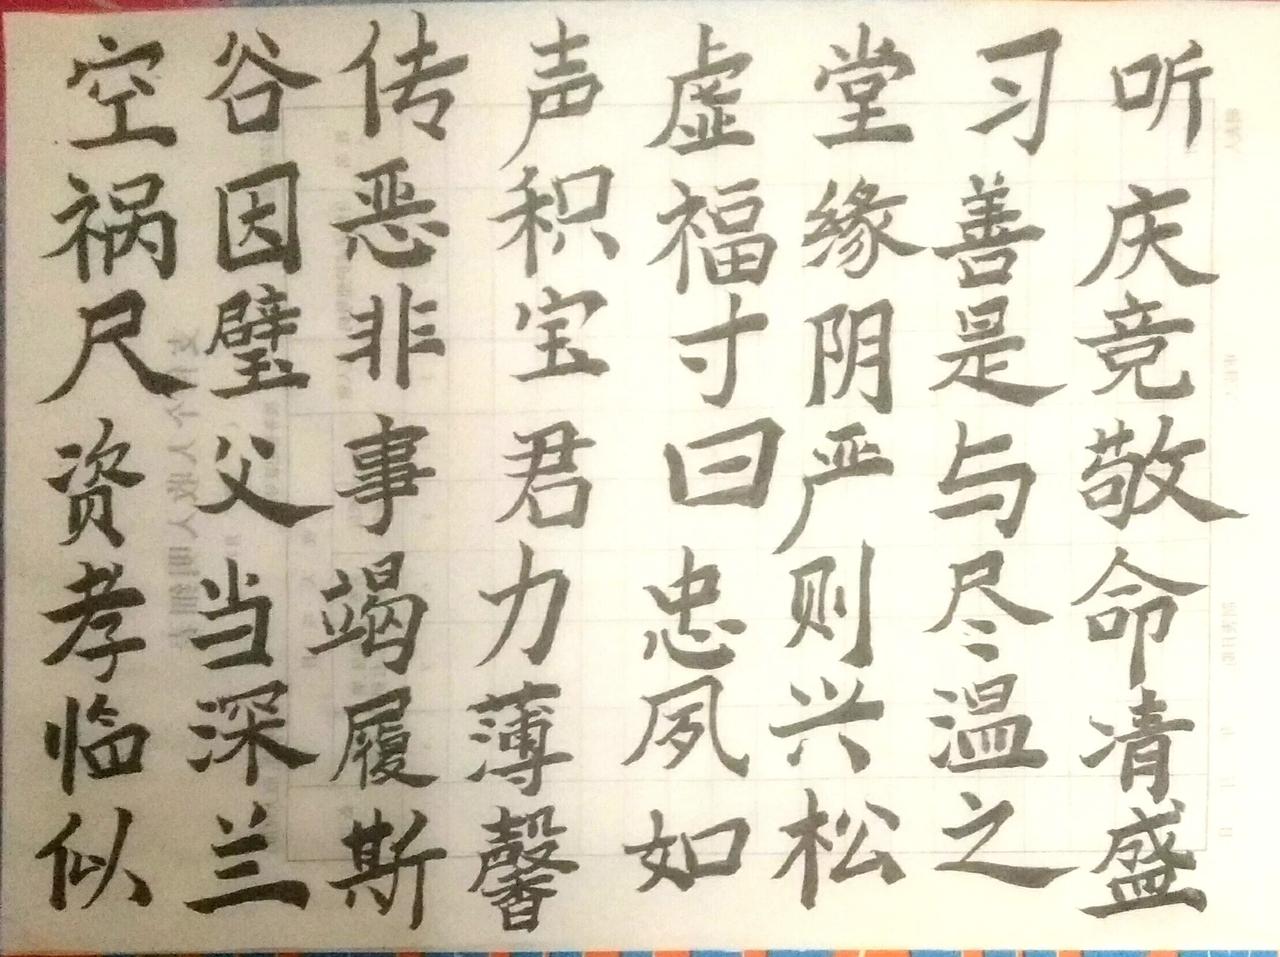 空谷传声虚堂习听
祸因恶积福缘善庆
尺璧非宝寸阴是竞
资父事君曰严与敬
孝当竭力忠则尽命
临深履薄夙兴温凊
似兰斯馨如松之盛